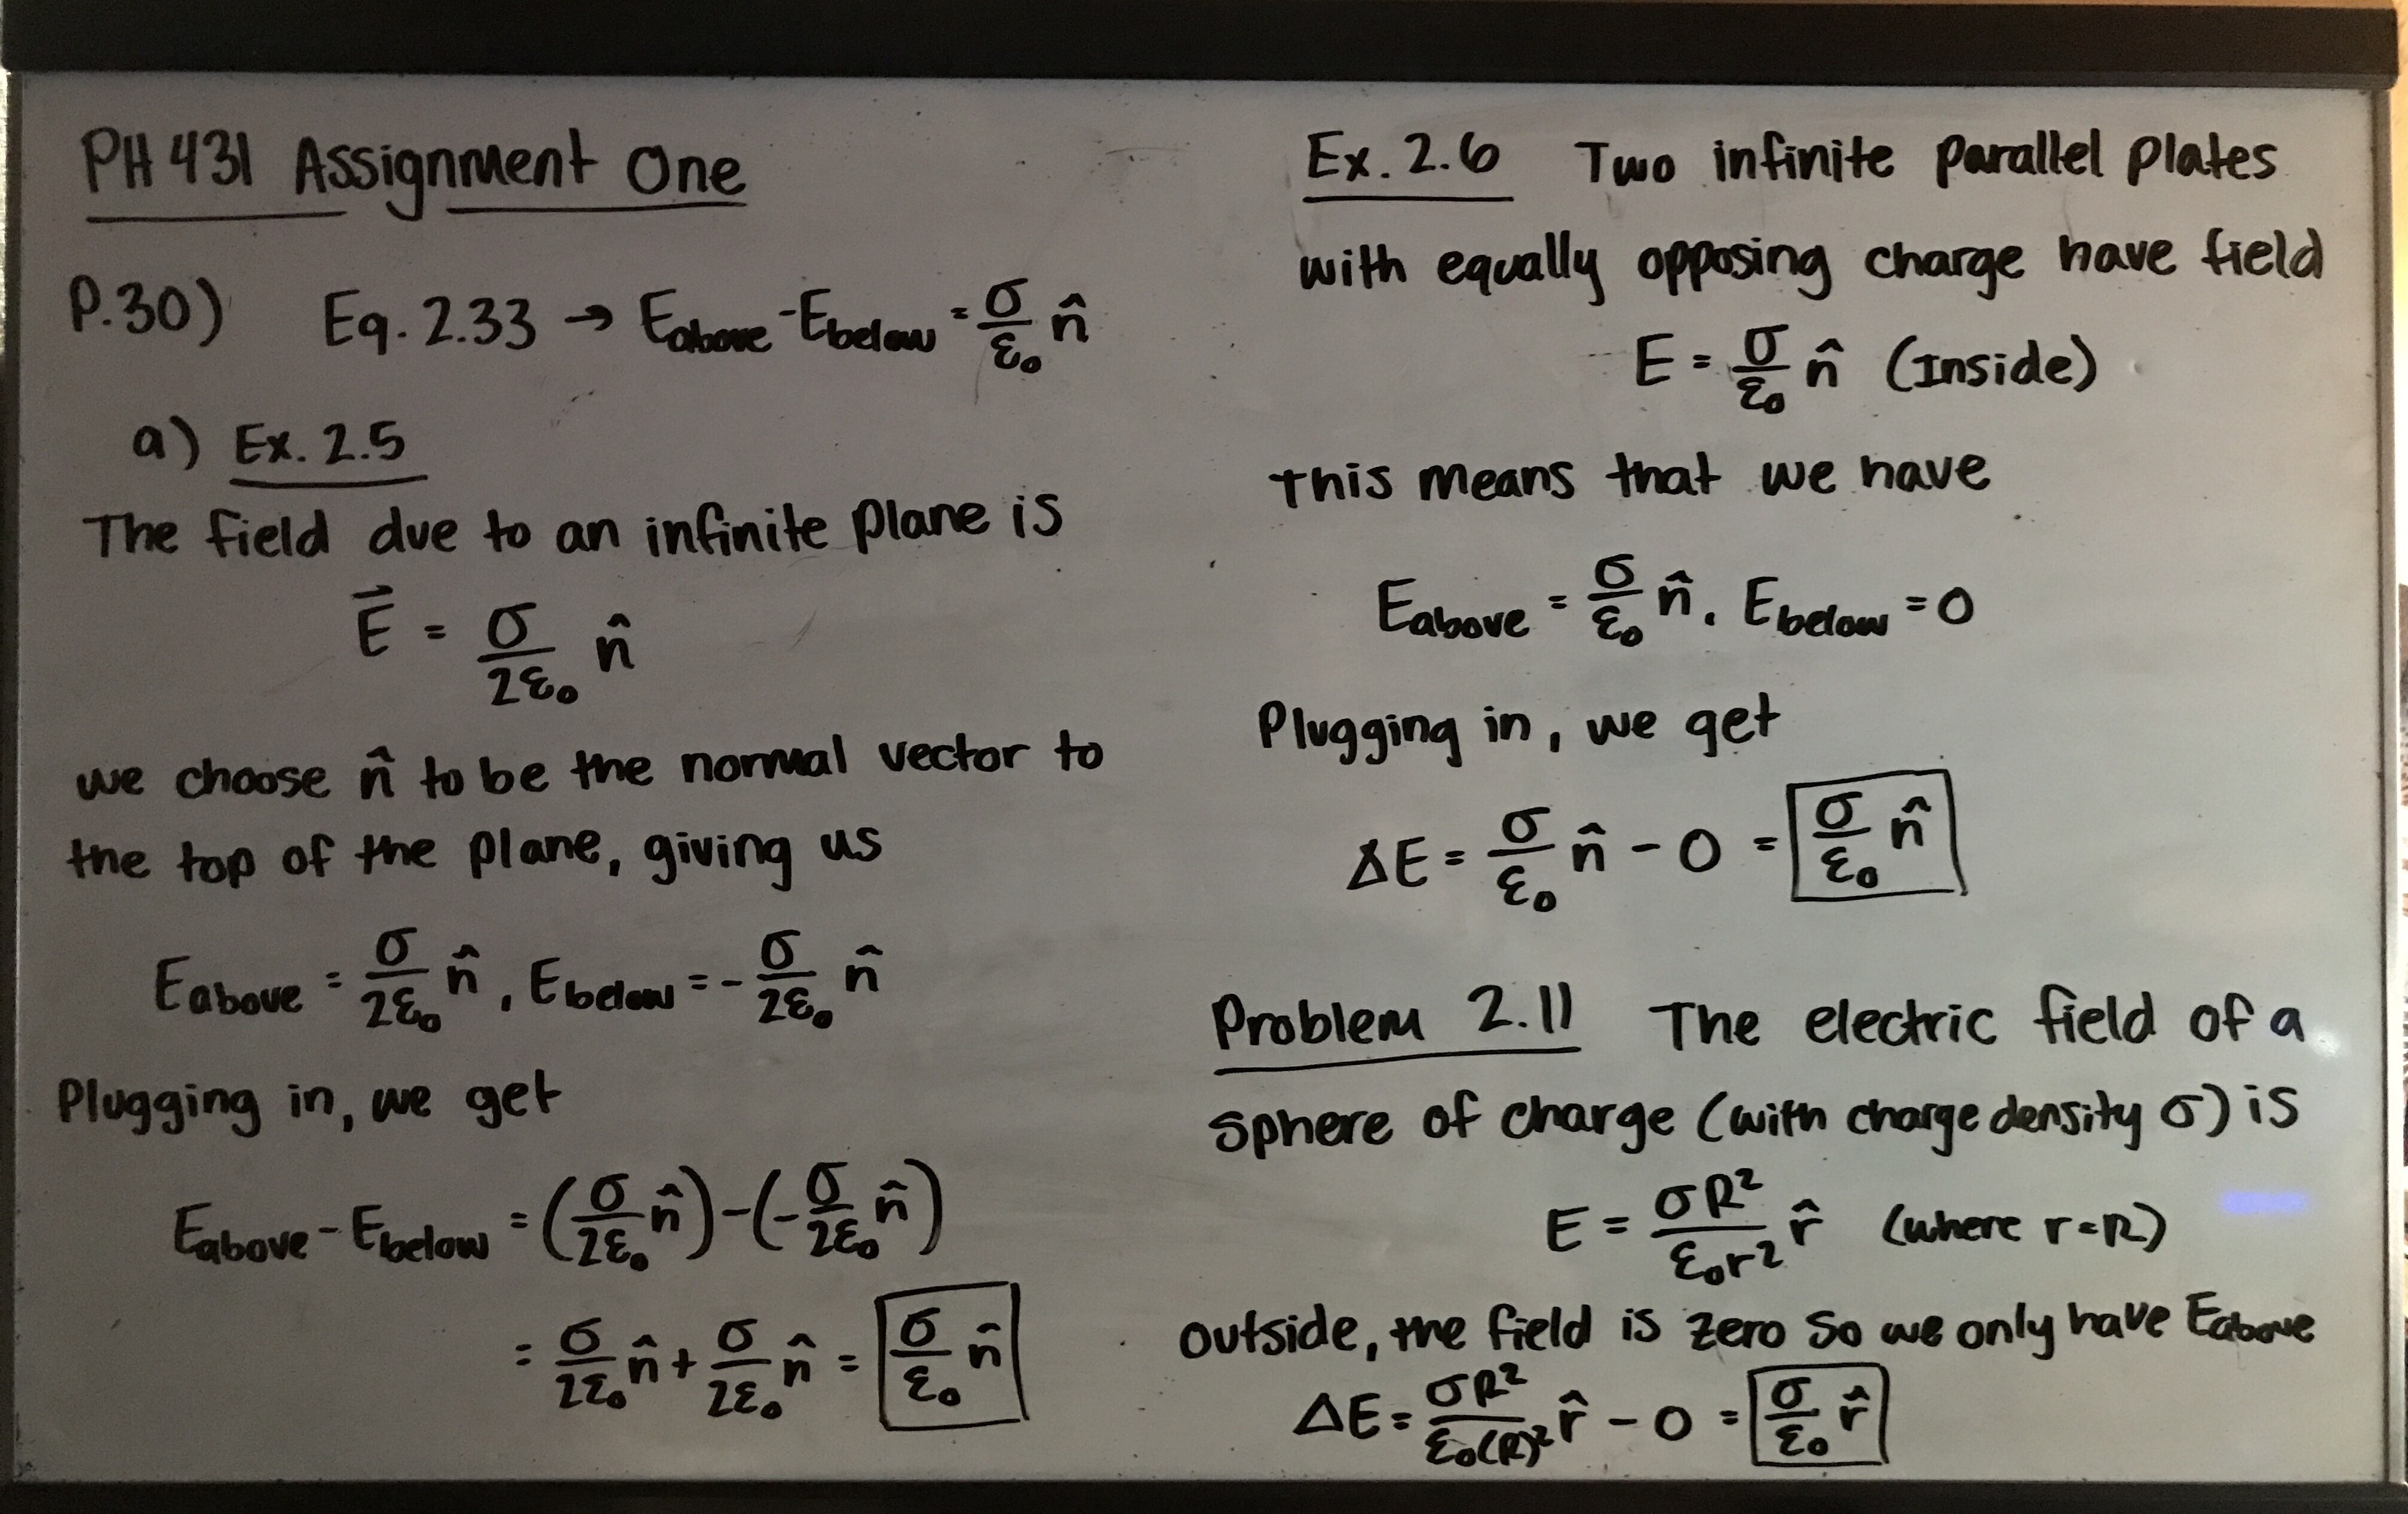 PH 431 Assignment One
P.30) Eq. 2.33 → E_above - E_below = σ/ε₀ n̂
a) Ex. 2.5
The field due to an infinite plane is
E⃗ = σ/2ε₀ n̂
we choose n̂ to be the normal vector to
the top of the plane, giving us
E_above = σ/2ε₀ n̂, E_below = -σ/2ε₀ n̂
Plugging in, we get
E_above - E_below = (σ/2ε₀ n̂) - (-σ/2ε₀ n̂)
= σ/2ε₀ n̂ + σ/2ε₀ n̂ = σ/ε₀ n̂
Ex. 2.6 Two infinite parallel plates
with equally opposing charge have field
E = σ/ε₀ n̂ (Inside)
This means that we have
E_above = σ/ε₀ n̂, E_below = 0
Plugging in, we get
ΔE = σ/ε₀ n̂ - 0 = σ/ε₀ n̂
Problem 2.11 The electric field of a
sphere of charge (with charge density σ) is
E = σR²/ε₀r² r̂ (where r=R)
outside, the field is zero so we only have E_above
ΔE = σR²/ε₀(R)² r̂ - 0 = σ/ε₀ r̂